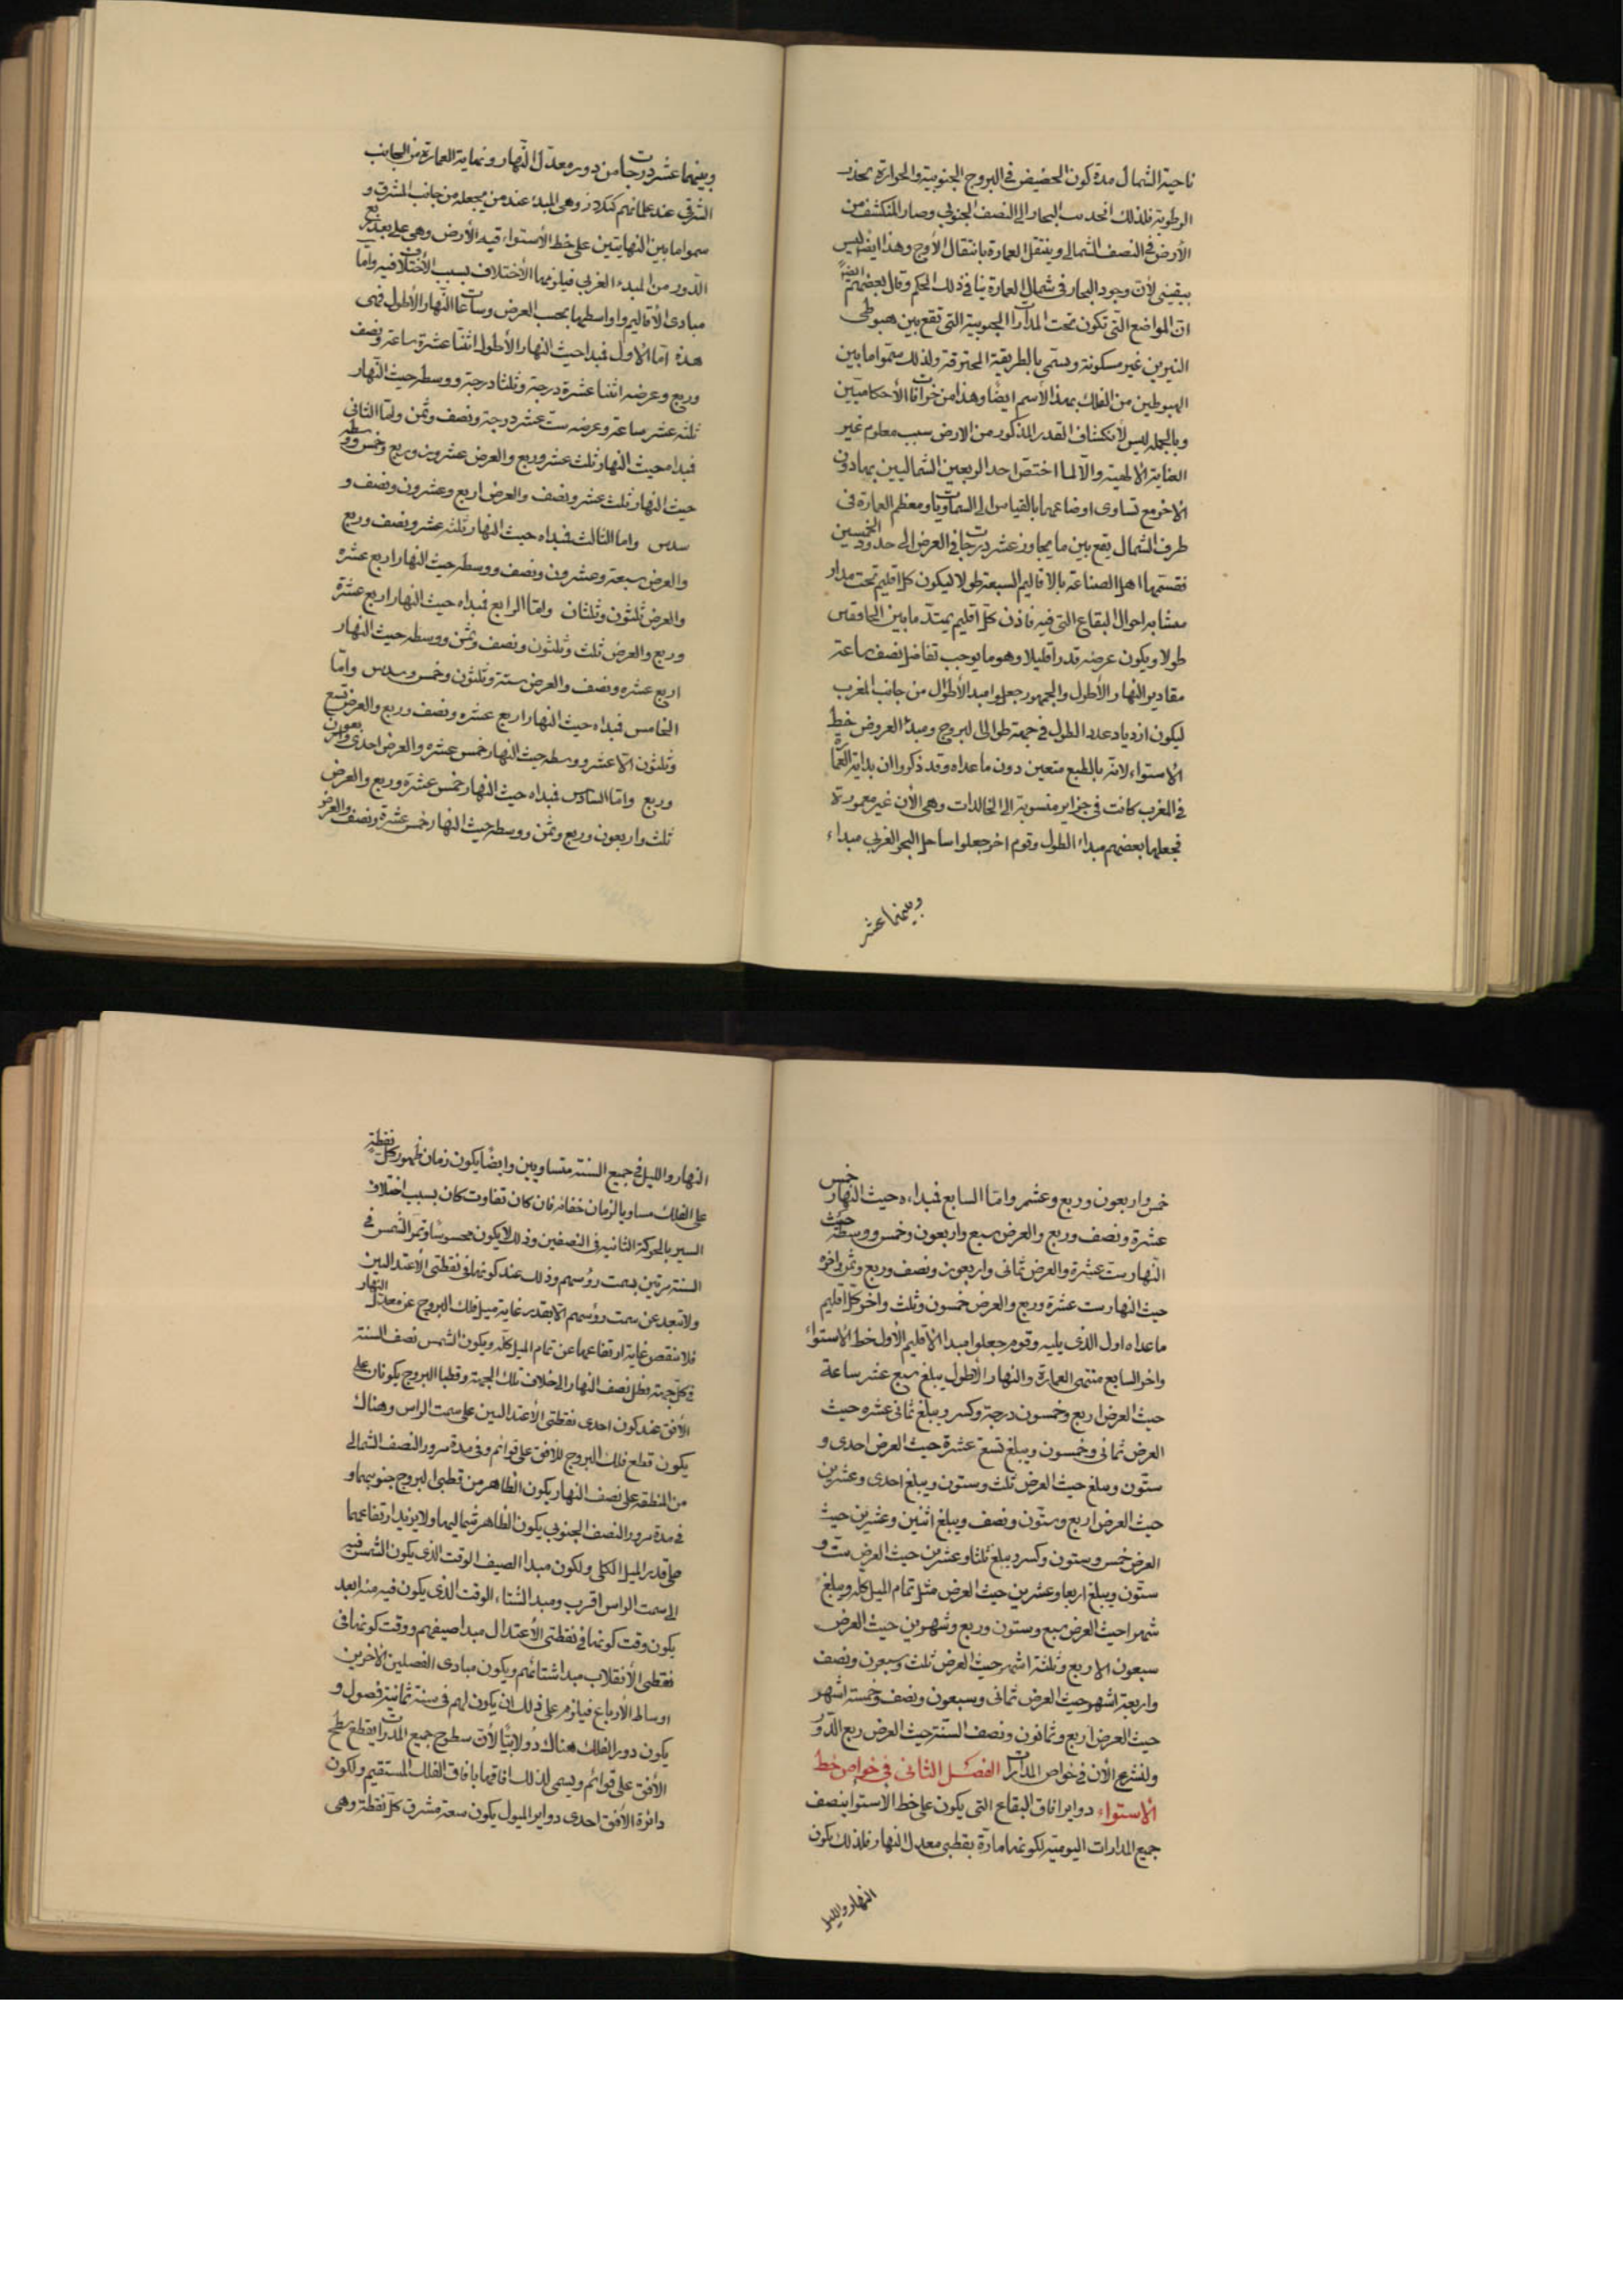 ناحية الشمال مدة كون الحضيض في البروج الجنوبية والحرارة تجذب
الرطوبة فلذلك انجذبت البحار الى النصف الجنوبي وصار المنكشف من
الأرض في النصف الشمالي وينتقل العمارة بانتقال الأوج وهذا ايضا ليس
بيقيني لأن وجود البحار في شمال العمارة ينافي ذلك الحكم وقال بعضهم ايضا
ان المواضع التي تكون تحت المدارات الجنوبية التي تقع بين هبوطي
النيرين غير مسكونة ويسمى بالطريقة المحترقة ولذلك سموا ما بين
الهبوطين من الفلك بهذا الأسم ايضا وهذا من خرافات الأحكاميين
وبالجملة ليس لأنكشاف القدر المذكور من الارض سبب معلوم غير
العناية الالهية والا لما اختص احد الربعين الشماليين بها دون
الأخر مع تساوى اوضاعهما بالقياس الى السماويات ومعظم العمارة في
طرف الشمال يقع بين ما يجاوز عشر درجات في العرض الى حدود الخمسين
فقسمها اهل الصناعة بالاقاليم السبعة طولا ليكون كل اقليم تحت مدار
متشابه احوال البقاع التي فيه فاذن كل اقليم يمتد ما بين الخافقين
طولا ويكون عرضه قدرا قليلا وهو ما يوجب تفاضل نصف ساعة
مقادير النهار الأطول والجمهور جعلوا مبدا الأطوال من جانب المغرب
ليكون ازدياد عدد الطول في جهة توالى البروج ومبدأ العروض خط
الاستواء لانه بالطبع متعين دون ما عداه وقد ذكروا ان بداية العمارة
في المغرب كانت في جزاير منسوبة الى الخالدات وهي الأن غير معمورة
فجعلها بعضهم مبداء الطول وقوم اخر جعلوا ساحل البحر الغربي مبداء
وبينهما عشر
وبينهما عشر درجات من دور معدل النهار ونهاية العمارة من الجانب
الشرقي عند علمائهم كنكدز وهي المبدء عند من يجعله من جانب المشرق و
سموا ما بين النهايتين على خط الأستواء قبة الأرض وهي على بعد ربع
الدور من المبدء الغربي فيلزمها الأختلاف بسبب الأختلاف فيه واما
مبادى الأقاليم واواسطها بحسب العرض وساعات النهار الأطول فهى
هذه اما الاول فمبداه حيث النهار الأطول اثنتا عشرة ساعة ونصف
وربع وعرضه اثنتا عشرة درجة وثلثا درجة ووسطه حيث النهار
ثلثه عشر ساعة وعرضه ست عشر درجة ونصف وثمن واما الثاني
فمبداه حيث النهار ثلث عشر وربع والعرض عشرون وربع وخمس ووسطه
حيث النهار ثلث عشر ونصف والعرض اربع وعشرون ونصف و
سدس واما الثالث فمبداه حيث النهار ثلثه عشر ونصف وربع
والعرض سبعة وعشرون ونصف ووسطه حيث النهار اربع عشره
والعرض ثلثون وثلثان واما الرابع فمبداه حيث النهار اربع عشرة
وربع والعرض ثلث وثلثون ونصف وثمن ووسطه حيث النهار
اربع عشره ونصف والعرض ستة وثلثون وخمس وسدس واما
الخامس فمبداه حيث النهار اربع عشره ونصف وربع والعرض تسع
وثلثون الا عشر ووسطه حيث النهار خمس عشره والعرض احدى واربعون
وربع واما السادس فمبداه حيث النهار خمس عشرة وربع والعرض
ثلث واربعون وربع وثمن ووسطه حيث النهار خمس عشرة ونصف والعرض
خمس واربعون وربع وعشر واما السابع فمبداءه حيث النهار خمس
عشرة ونصف وربع والعرض سبع واربعون وخمس ووسطه حيث
النهار ست عشرة والعرض ثمانى واربعون ونصف وربع وثمن واخره
حيث النهار ست عشرة وربع والعرض خمسون وثلث واخر كل اقليم
ما عداه اول الذى يليه وقوم جعلوا مبدا الاقليم الأول خط الاستواء
واخر السابع منتهى العمارة والنهار الأطول يبلغ سبع عشر ساعة
حيث العرض اربع وخمسون درجة وكسر ويبلغ ثمانى عشره حيث
العرض ثمانى وخمسون ويبلغ تسع عشرة حيث العرض احدى و
ستون ويبلغ حيث العرض ثلث وستون ويبلغ احدى وعشرين
حيث العرض اربع وستون ونصف ويبلغ اثنين وعشرين حيث
العرض خمس وستون وكسر ويبلغ ثلثا وعشرين حيث العرض ست و
ستون ويبلغ اربعا وعشرين حيث العرض مثل تمام الميل كله ويبلغ
شهرا حيث العرض سبع وستون وربع وشهرين حيث العرض
سبعون الا ربع وثلثة اشهر حيث العرض ثلث وسبعون ونصف
واربعة اشهر حيث العرض ثمانى وسبعون ونصف وخمسة اشهر
حيث العرض اربع وثمانون ونصف السنة حيث العرض ربع الدور
ولنشرع الأن في خواص المدارات الفصل الثانى في خواص خط
الاستواء دواير افاق البقاع التي يكون على خط الاستواء ينصف
جميع المدارات اليومية لكونها مارة بقطبى معدل النهار فلذلك يكون
النهار والليل
النهار والليل في جميع السنة متساويين وايضا يكون زمان ظهور كل نقطة
على الفلك مساويا لزمان خفائه فان كان تفاوت كان بسبب اختلاف
السير بالحركة الثانية في النصفين وذلك لا يكون محسوسا وتمر الشمس في
السنة مرتين بسمت رؤسهم وذلك عند كونها في نقطتى الأعتدالين
ولا تبعد عن سمت رؤسهم الا بقدر غاية ميل فلك البروج عن معدل النهار
فلا ينقص غاية ارتفاعها عن تمام الميل كله ويكون الشمس نصف السنة
في كل جهة بظل نصف النهار الى خلاف تلك الجهة وقطبا البروج يكونان على
الأفق عند كون احدى نقطتى الأعتدالين على سمت الراس وهناك
يكون قطع فلك البروج للأفق على قوائم وفى مدة مرور النصف الشمالى
من المنطقة على نصف النهار يكون الظاهر من قطبى البروج جنوبيهما و
في مدة مرور النصف الجنوبي يكون الظاهر شماليهما ولا يزيد ارتفاعهما
على قدر الميل الكلى ولكون مبدا الصيف الوقت الذى يكون الشمس فيه
الى سمت الراس اقرب ومبدا الشتاء الوقت الذى يكون فيه منه ابعد
يكون وقت كونها في نقطتى الأعتدال مبدا صيفهم ووقت كونها في
نقطتى الأنقلاب مبدا شتائهم ويكون مبادى الفصلين الأخرين
اوساط الأرباع فيلزم على ذلك ان يكون لهم في سنة ثمانية فصول و
يكون دور الفلك هناك دولابيا لأن سطوح جميع المدارات يقطع سطح
الأفق على قوائم ويسمى لذلك افاقها بافاق الفلك المستقيم ولكون
دائرة الأفق احدى دواير الميول يكون سعة مشرق كل نقطة وهى